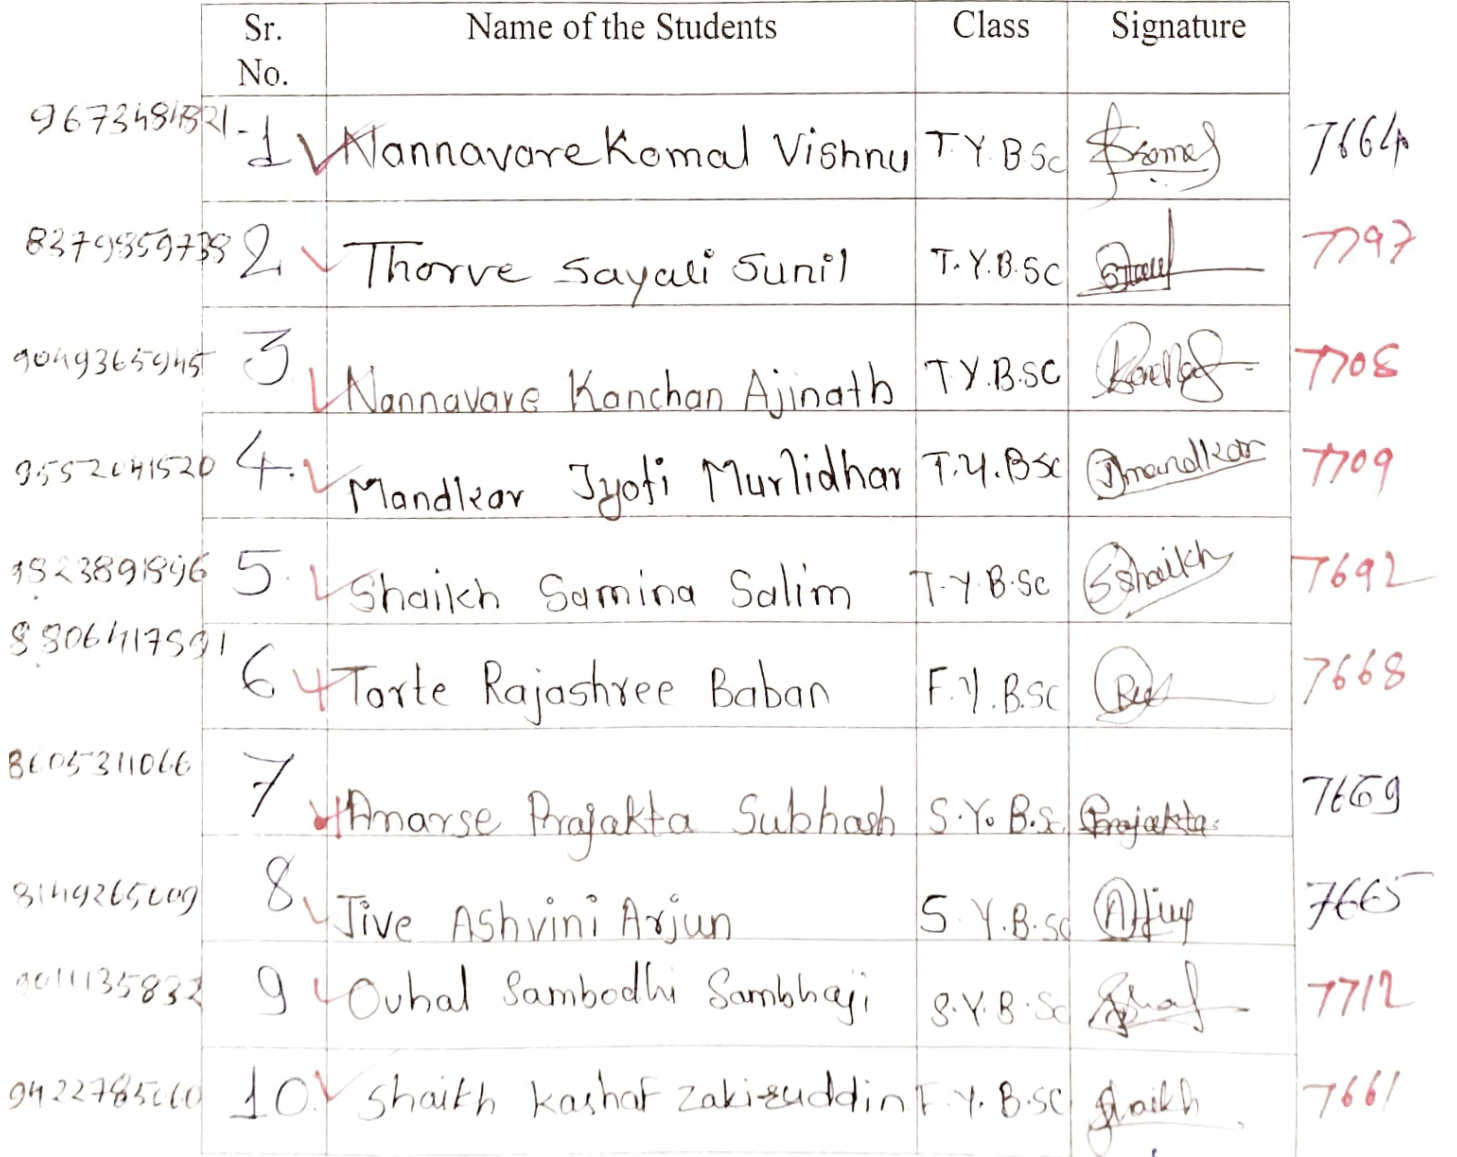 Sr. No. Name of the Students Class Signature
9673484821 - 1 Nannavare Komal Vishnu T.Y.B.Sc Komal 7664
8379859738 2 Thorve Sayali Sunil T.Y.B.Sc 7797
9049365945 3 Nannavare Kanchan Ajinath T.Y.B.Sc 7708
9552041520 4. Mandkar Jyoti Murlidhar T.Y.BSc Jmandkar 7709
9823891896 5. Shaikh Samina Salim T.Y.B.Sc SShaikh 7692
8806417591 6 Tarte Rajashree Baban F.Y.B.Sc 7668
8605311066 7 Anarse Prajakta Subhash S.Y.B.Sc Prajakta 7669
8149265009 8 Jive Ashvini Arjun S.Y.B.Sc 7665
9011135832 9 Ovhal Sambodhi Sambhaji S.Y.B.Sc 7712
9422785060 10. Shaikh Kashaf Zakizuddin F.Y.B.SC Shaikh 7661